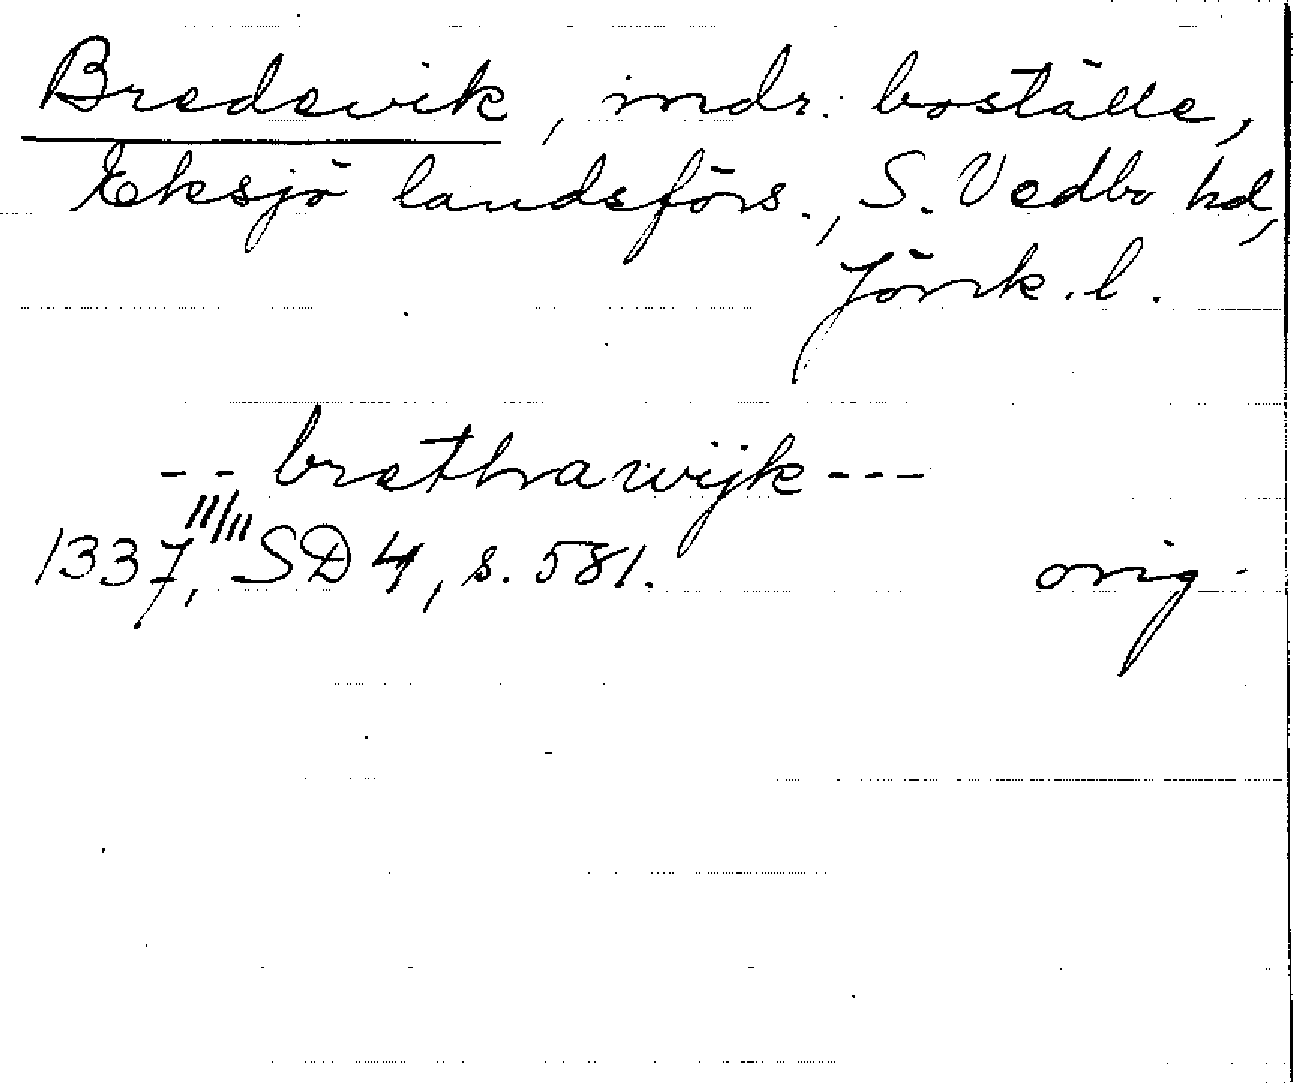 Bredevik, indr. boställe,
Eksjö landsförs., S. Vedbo hd,
Jönk. l.
-- brethawijk ---
1337 11/11, SD 4, s. 581. orig.